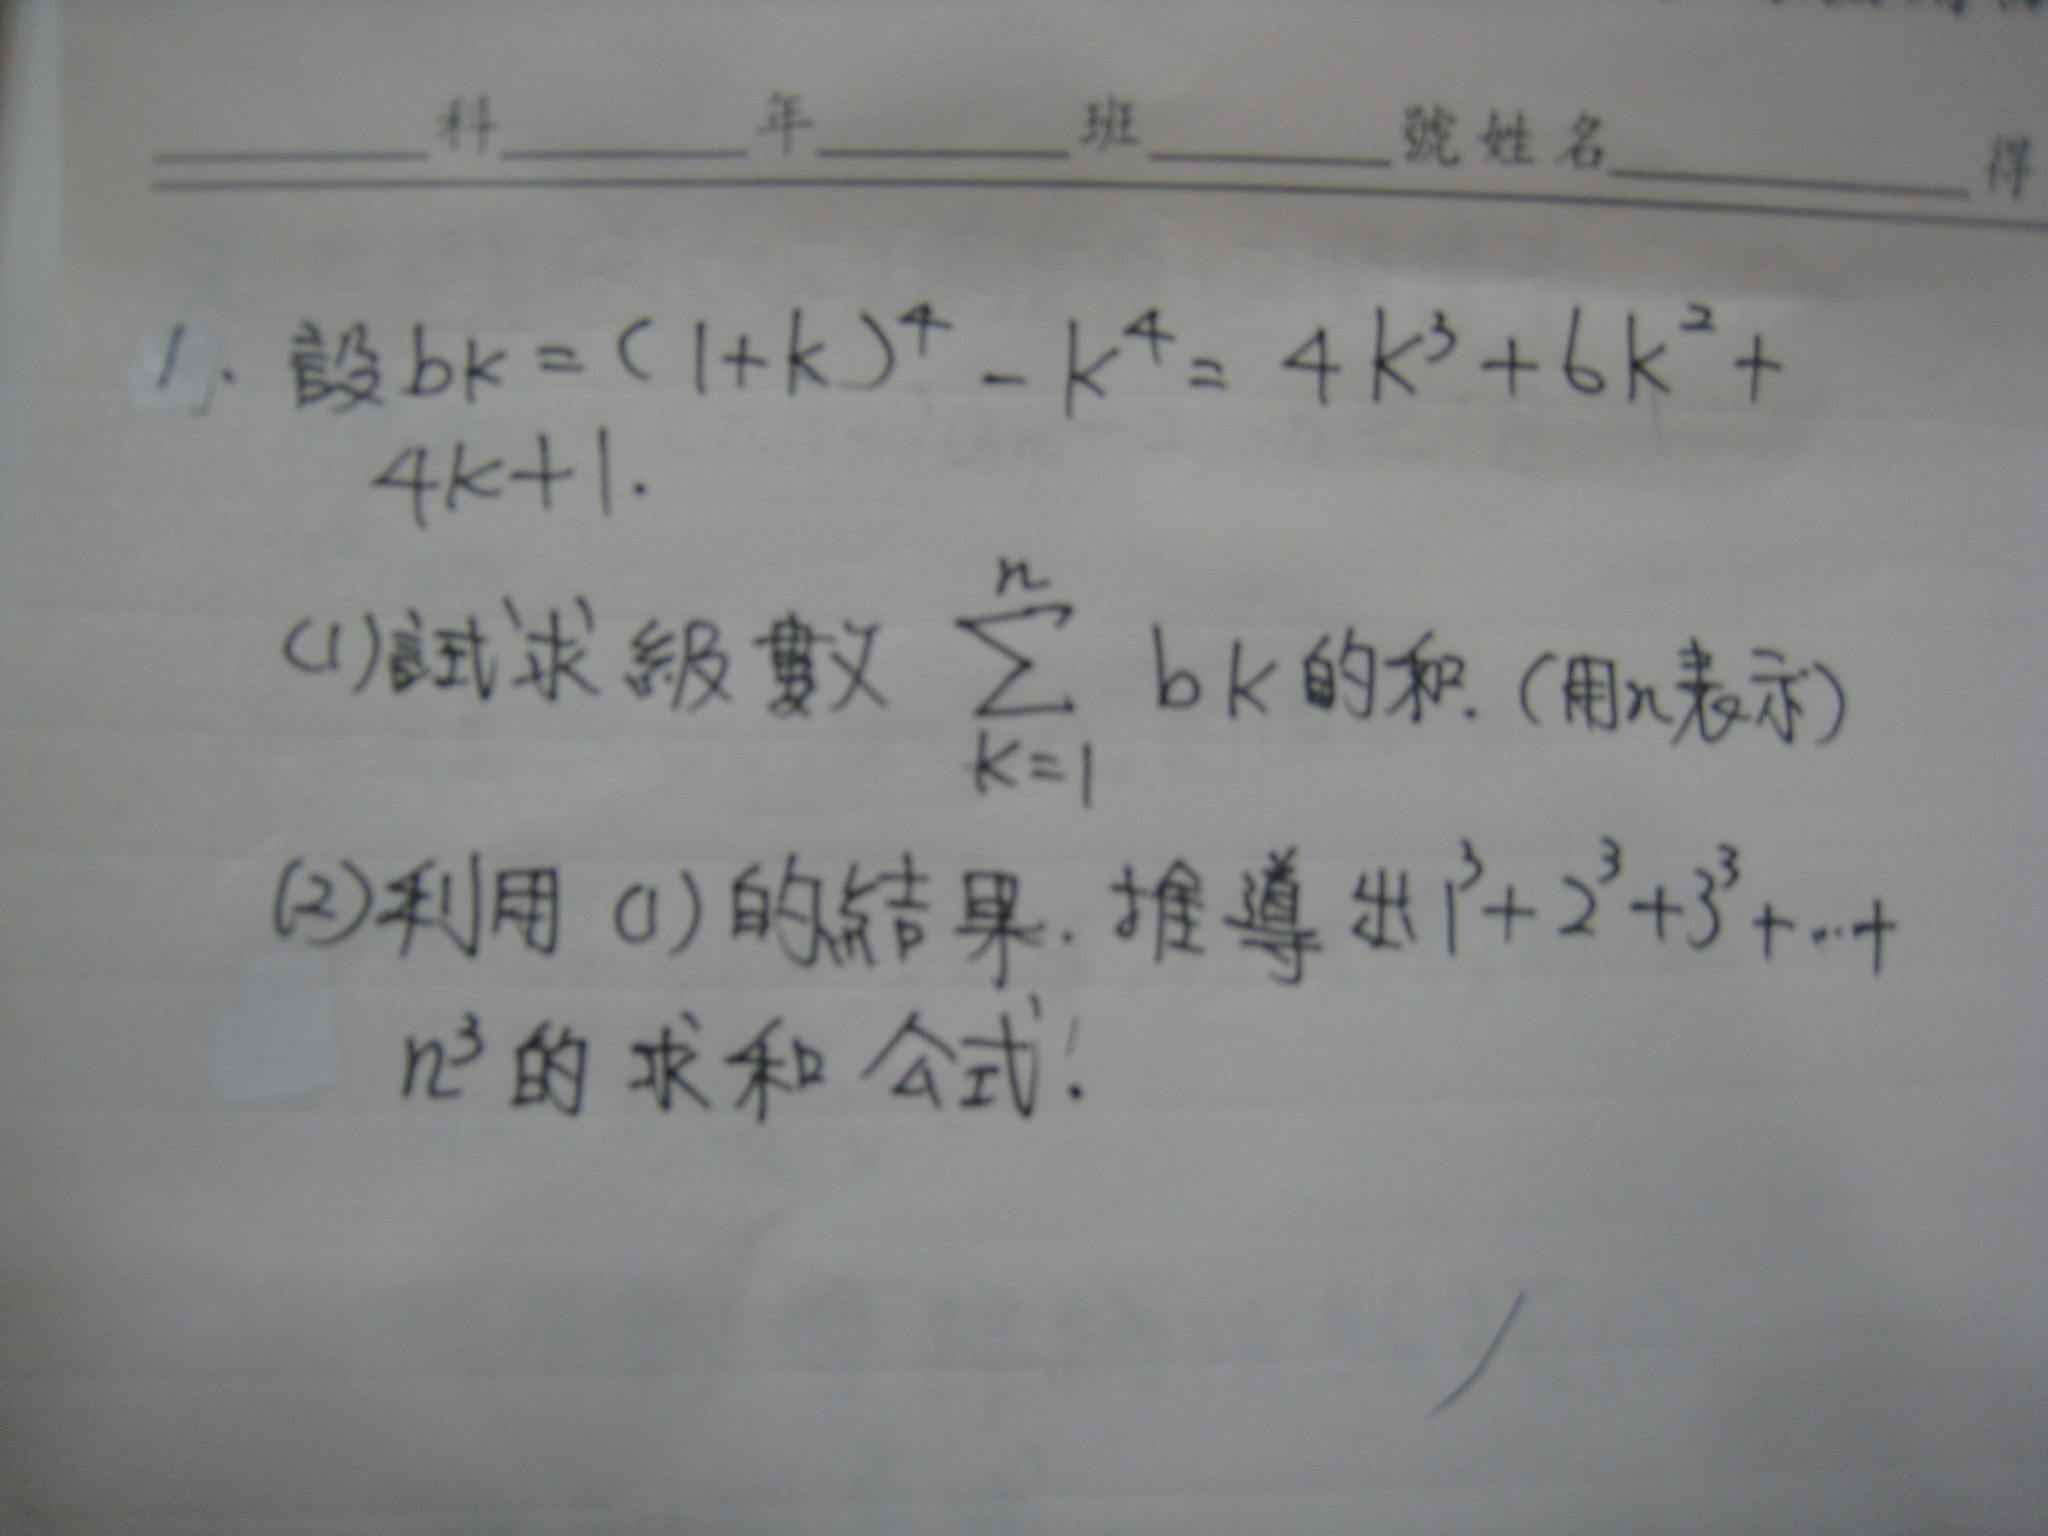 科 年 班 號 姓名 得
1. 設 bk = (1+k)⁴ - k⁴ = 4k³ + 6k² +
4k+1.
(1) 試求級數 n∑k=1 bk 的和. (用n表示)
(2) 利用 (1) 的結果. 推導出 1³ + 2³ + 3³ + … +
n³ 的求和公式!